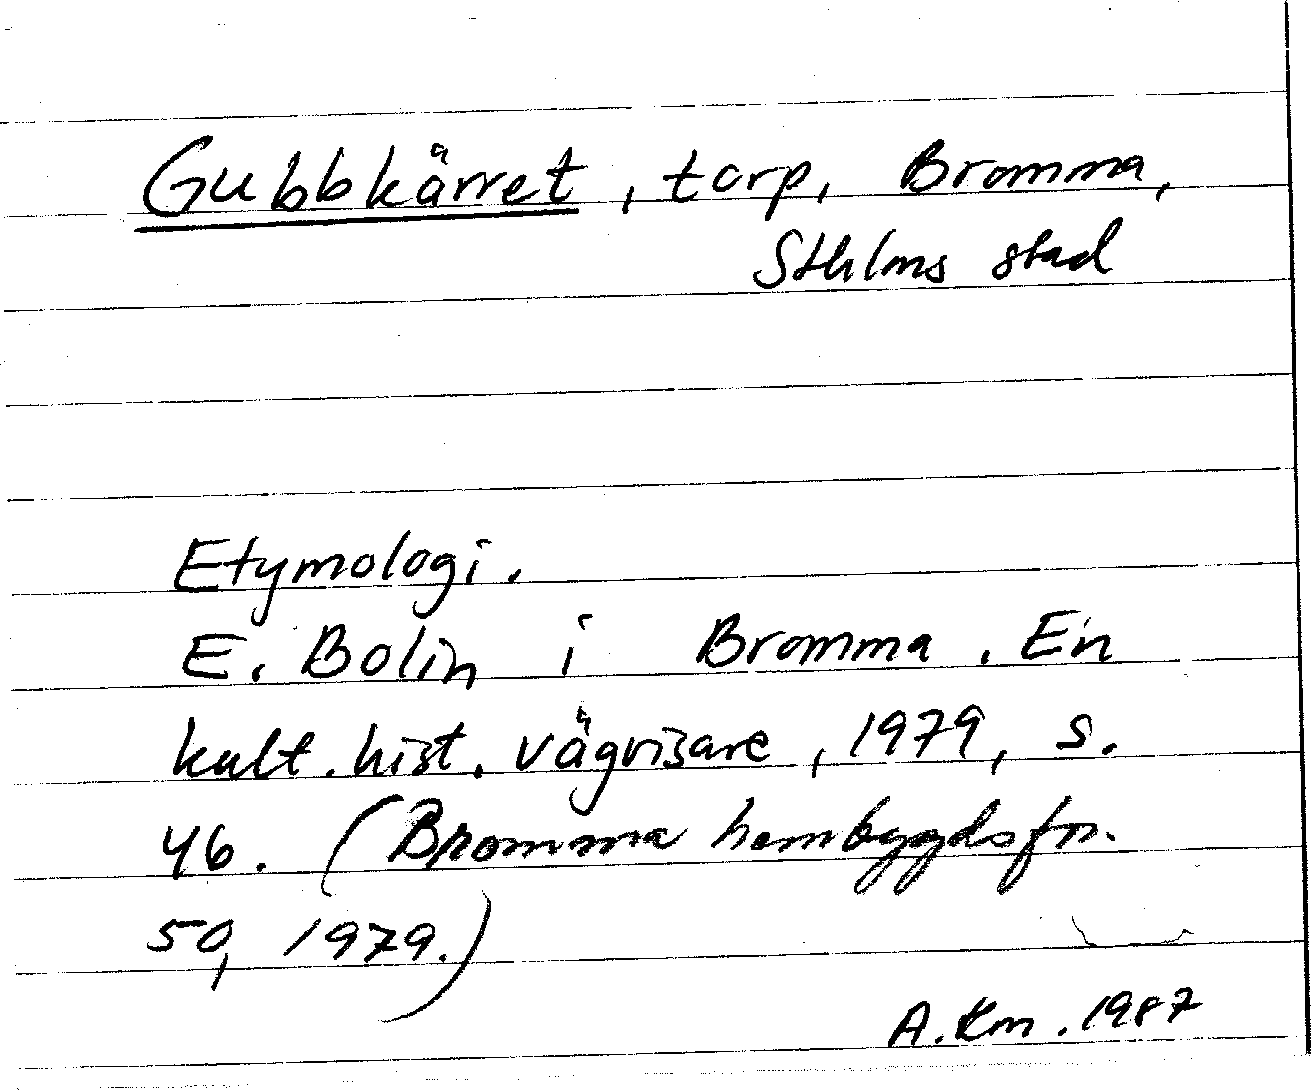 Gubbkärret, torp, Bromma,
Sthlms stad
Etymologi.
E. Bolin i Bromma. En
kult.hist. vägvisare, 1979, s.
46. (Bromma hembygdsför.
50, 1979.)
A.Km.1987